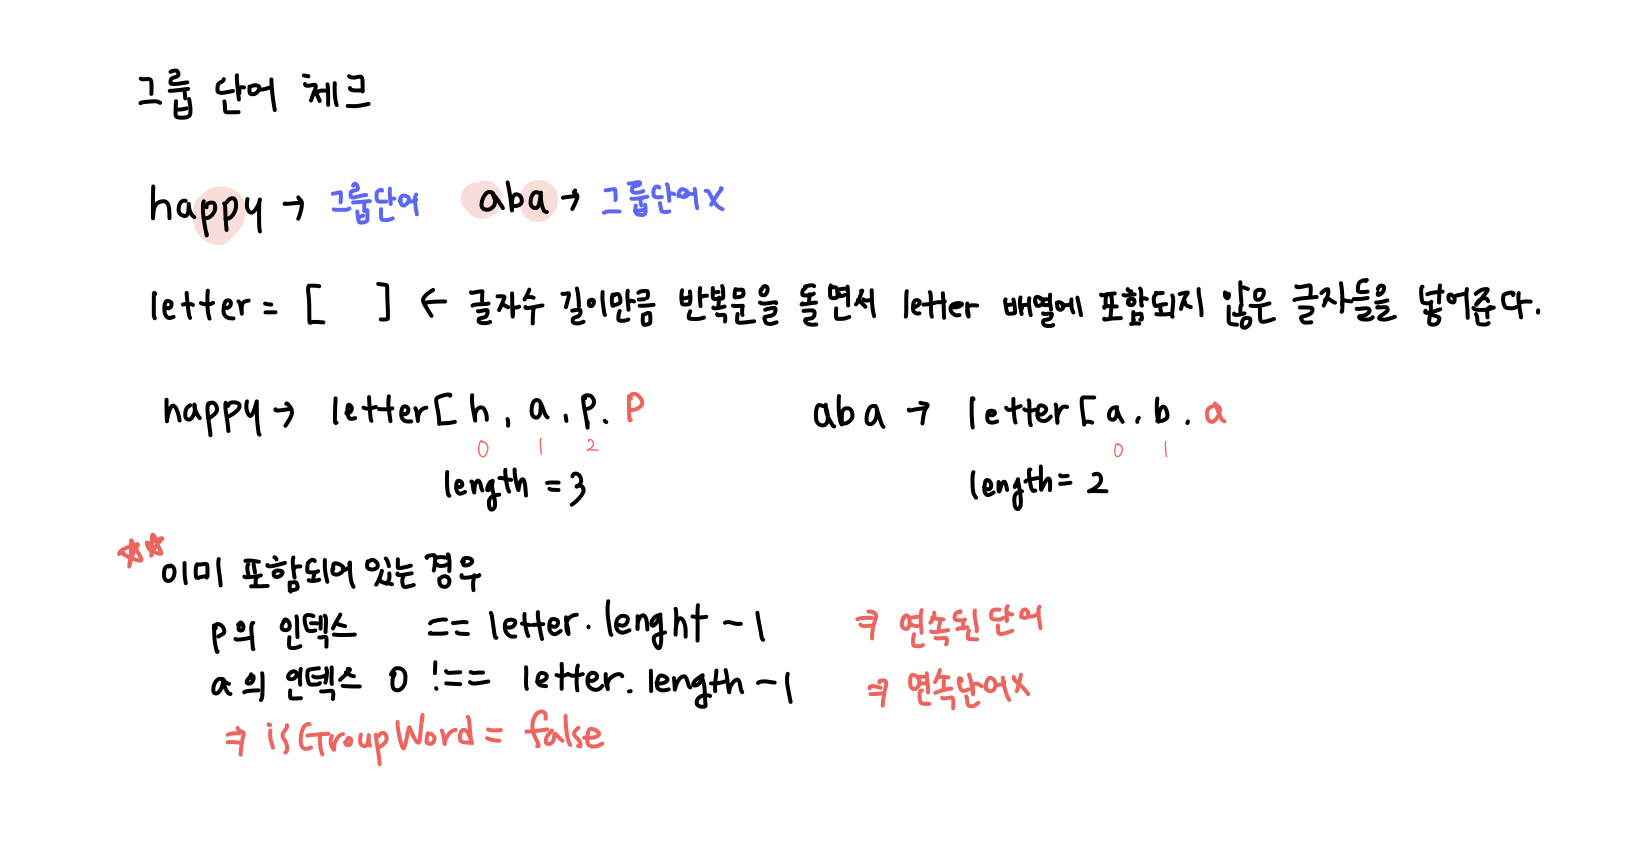 그룹 단어 체크
happy → 그룹단어 aba → 그룹단어X
letter = [ ] ← 글자수 길이만큼 반복문을 돌면서 letter 배열에 포함되지 않은 글자들을 넣어준다.
happy → letter [ h , a , p . p aba → letter [ a . b . a
0 1 2 0 1
length = 3 length = 2
☆☆ 이미 포함되어 있는 경우
p의 인덱스 == letter. lenght - 1 ⇒ 연속된 단어
a의 인덱스 0 !== letter. length - 1 ⇒ 연속단어X
⇒ isGroupWord = false